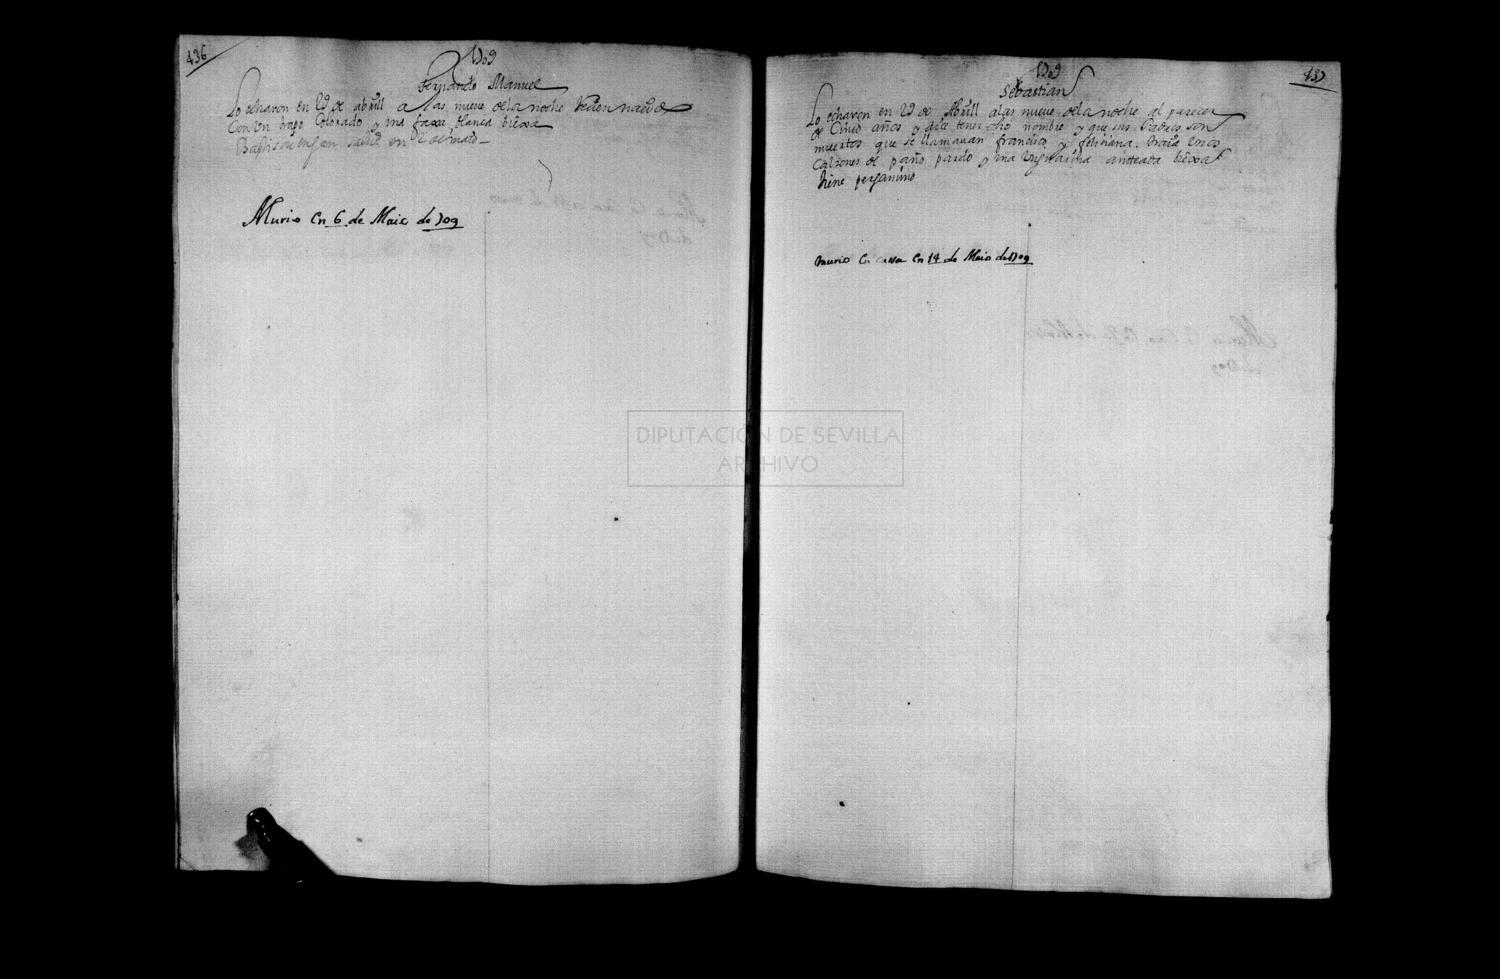 436
1709
Fernando Manuel
Lo echaron en 29 de abrill a las nueve de la noche Recien nacido
Con Un trapo Colorado y una faxa blanca biexa
Baptisose en San salbador en
Murio En 6 de Maio de 709
1709
437
Sebastian
Lo echaron en 29 de Abrill a las nueve de la noche al parecer
de Cinco años y dice tener dho nombre y que sus Padres son
muertos que se llamauan francisco y feliciana. traia Unos
Calsones de paño pardo y una Unguarina anteada biexa
tiene pergamino
murio En cassa En 14 de Maio de 1709
DIPUTACIÓN DE SEVILLA
ARCHIVO